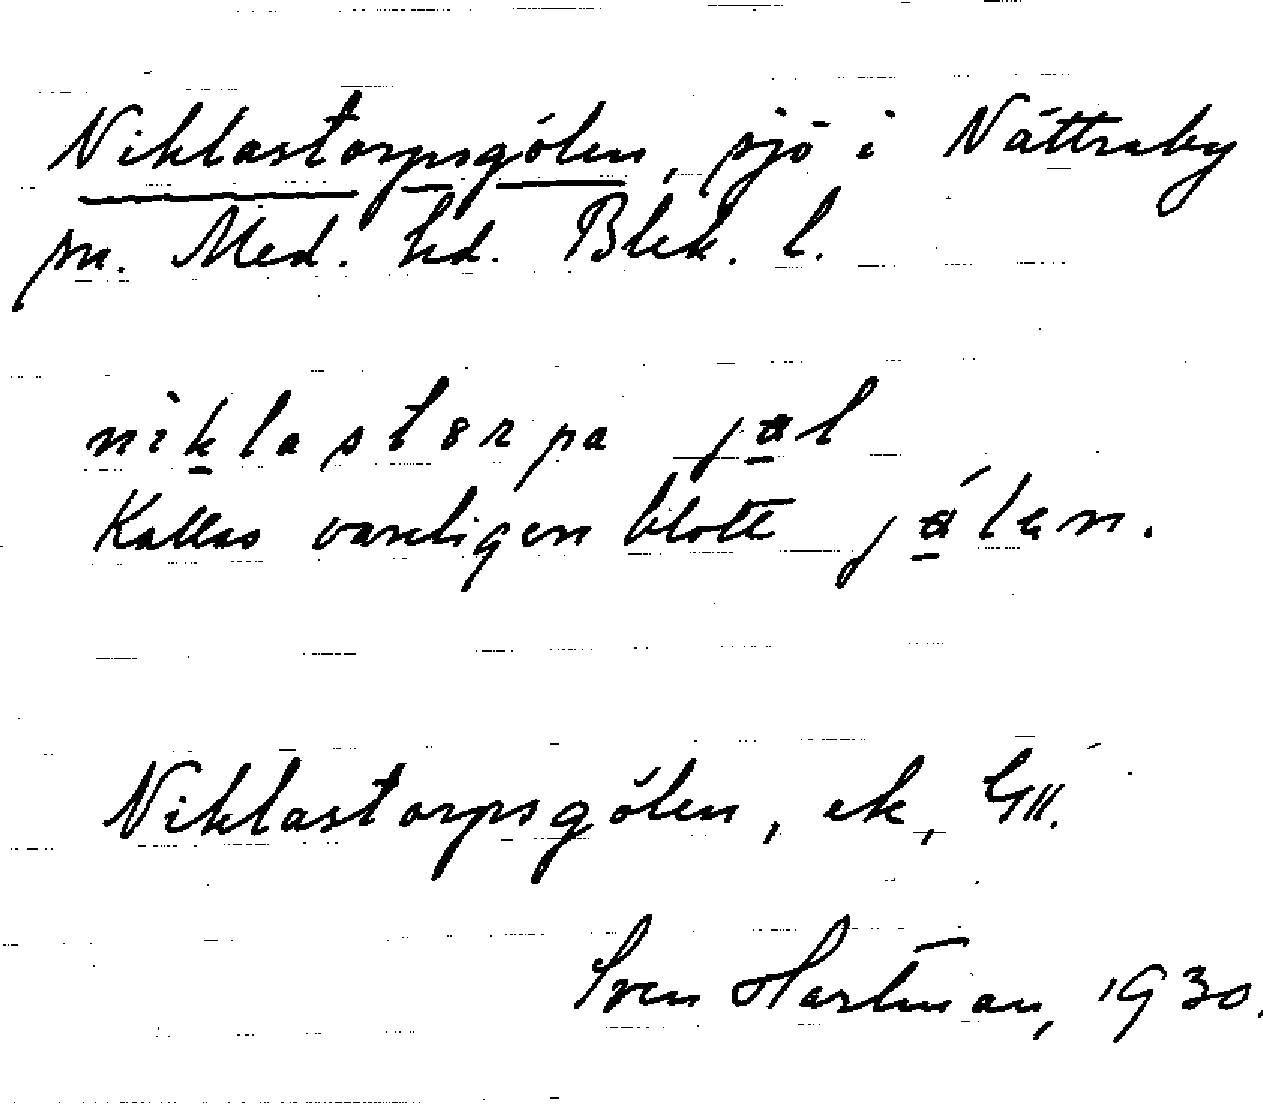 Niklastorpsgölen, sjö i Nättraby
sn. Med. hd. Blek. l.
niklastorpa jøl
Kallas vanligen blott jølen.
Niklastorpsgölen, ek, GII.
Sven Hartman, 1930.